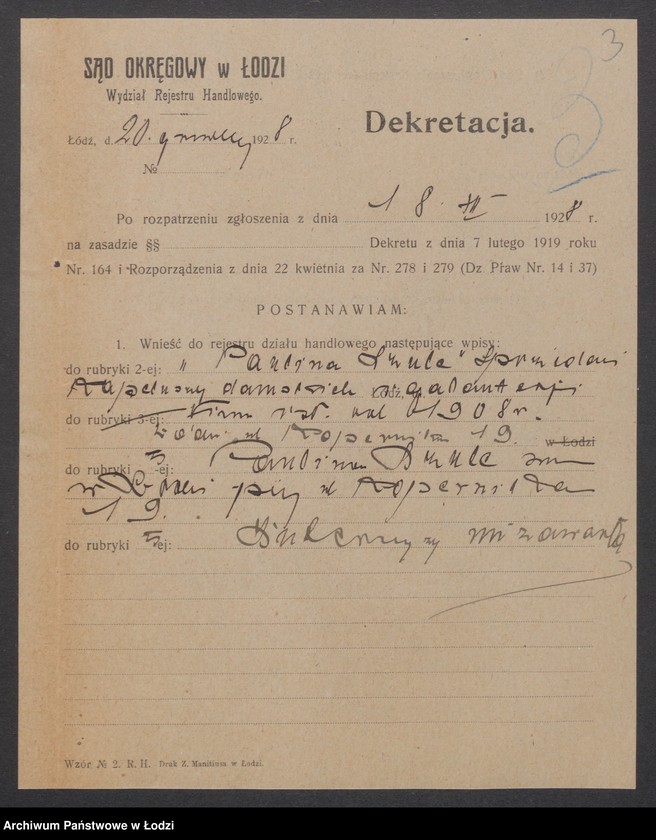 3
SĄD OKRĘGOWY w ŁODZI
Wydział Rejestru Handlowego.
Dekretacja.
Łódź, d. 20. grudnia 1928 r.
№
Po rozpatrzeniu zgłoszenia z dnia 18. XII 1928 r.
na zasadzie §§ Dekretu z dnia 7 lutego 1919 roku
Nr. 164 i Rozporządzenia z dnia 22 kwietnia za Nr. 278 i 279 (Dz Praw Nr. 14 i 37)
POSTANAWIAM:
1. Wnieść do rejestru działu handlowego następujące wpisy:
do rubryki 2-ej: „Paulina Szulc" Sprzedaż
kapeluszy damskich i galanterji
Łódź,
do rubryki 3-ej: Firma istn. od 1908 r.
Łódź, ul. Kopernika 19. w Łodzi
do rubryki -ej: Paulina Szulc zam.
w Łodzi przy ul. Kopernika
19.
do rubryki -ej:
Wzór № 2. R. H. Druk Z. Manitiusa w Łodzi.
Archiwum Państwowe w Łodzi